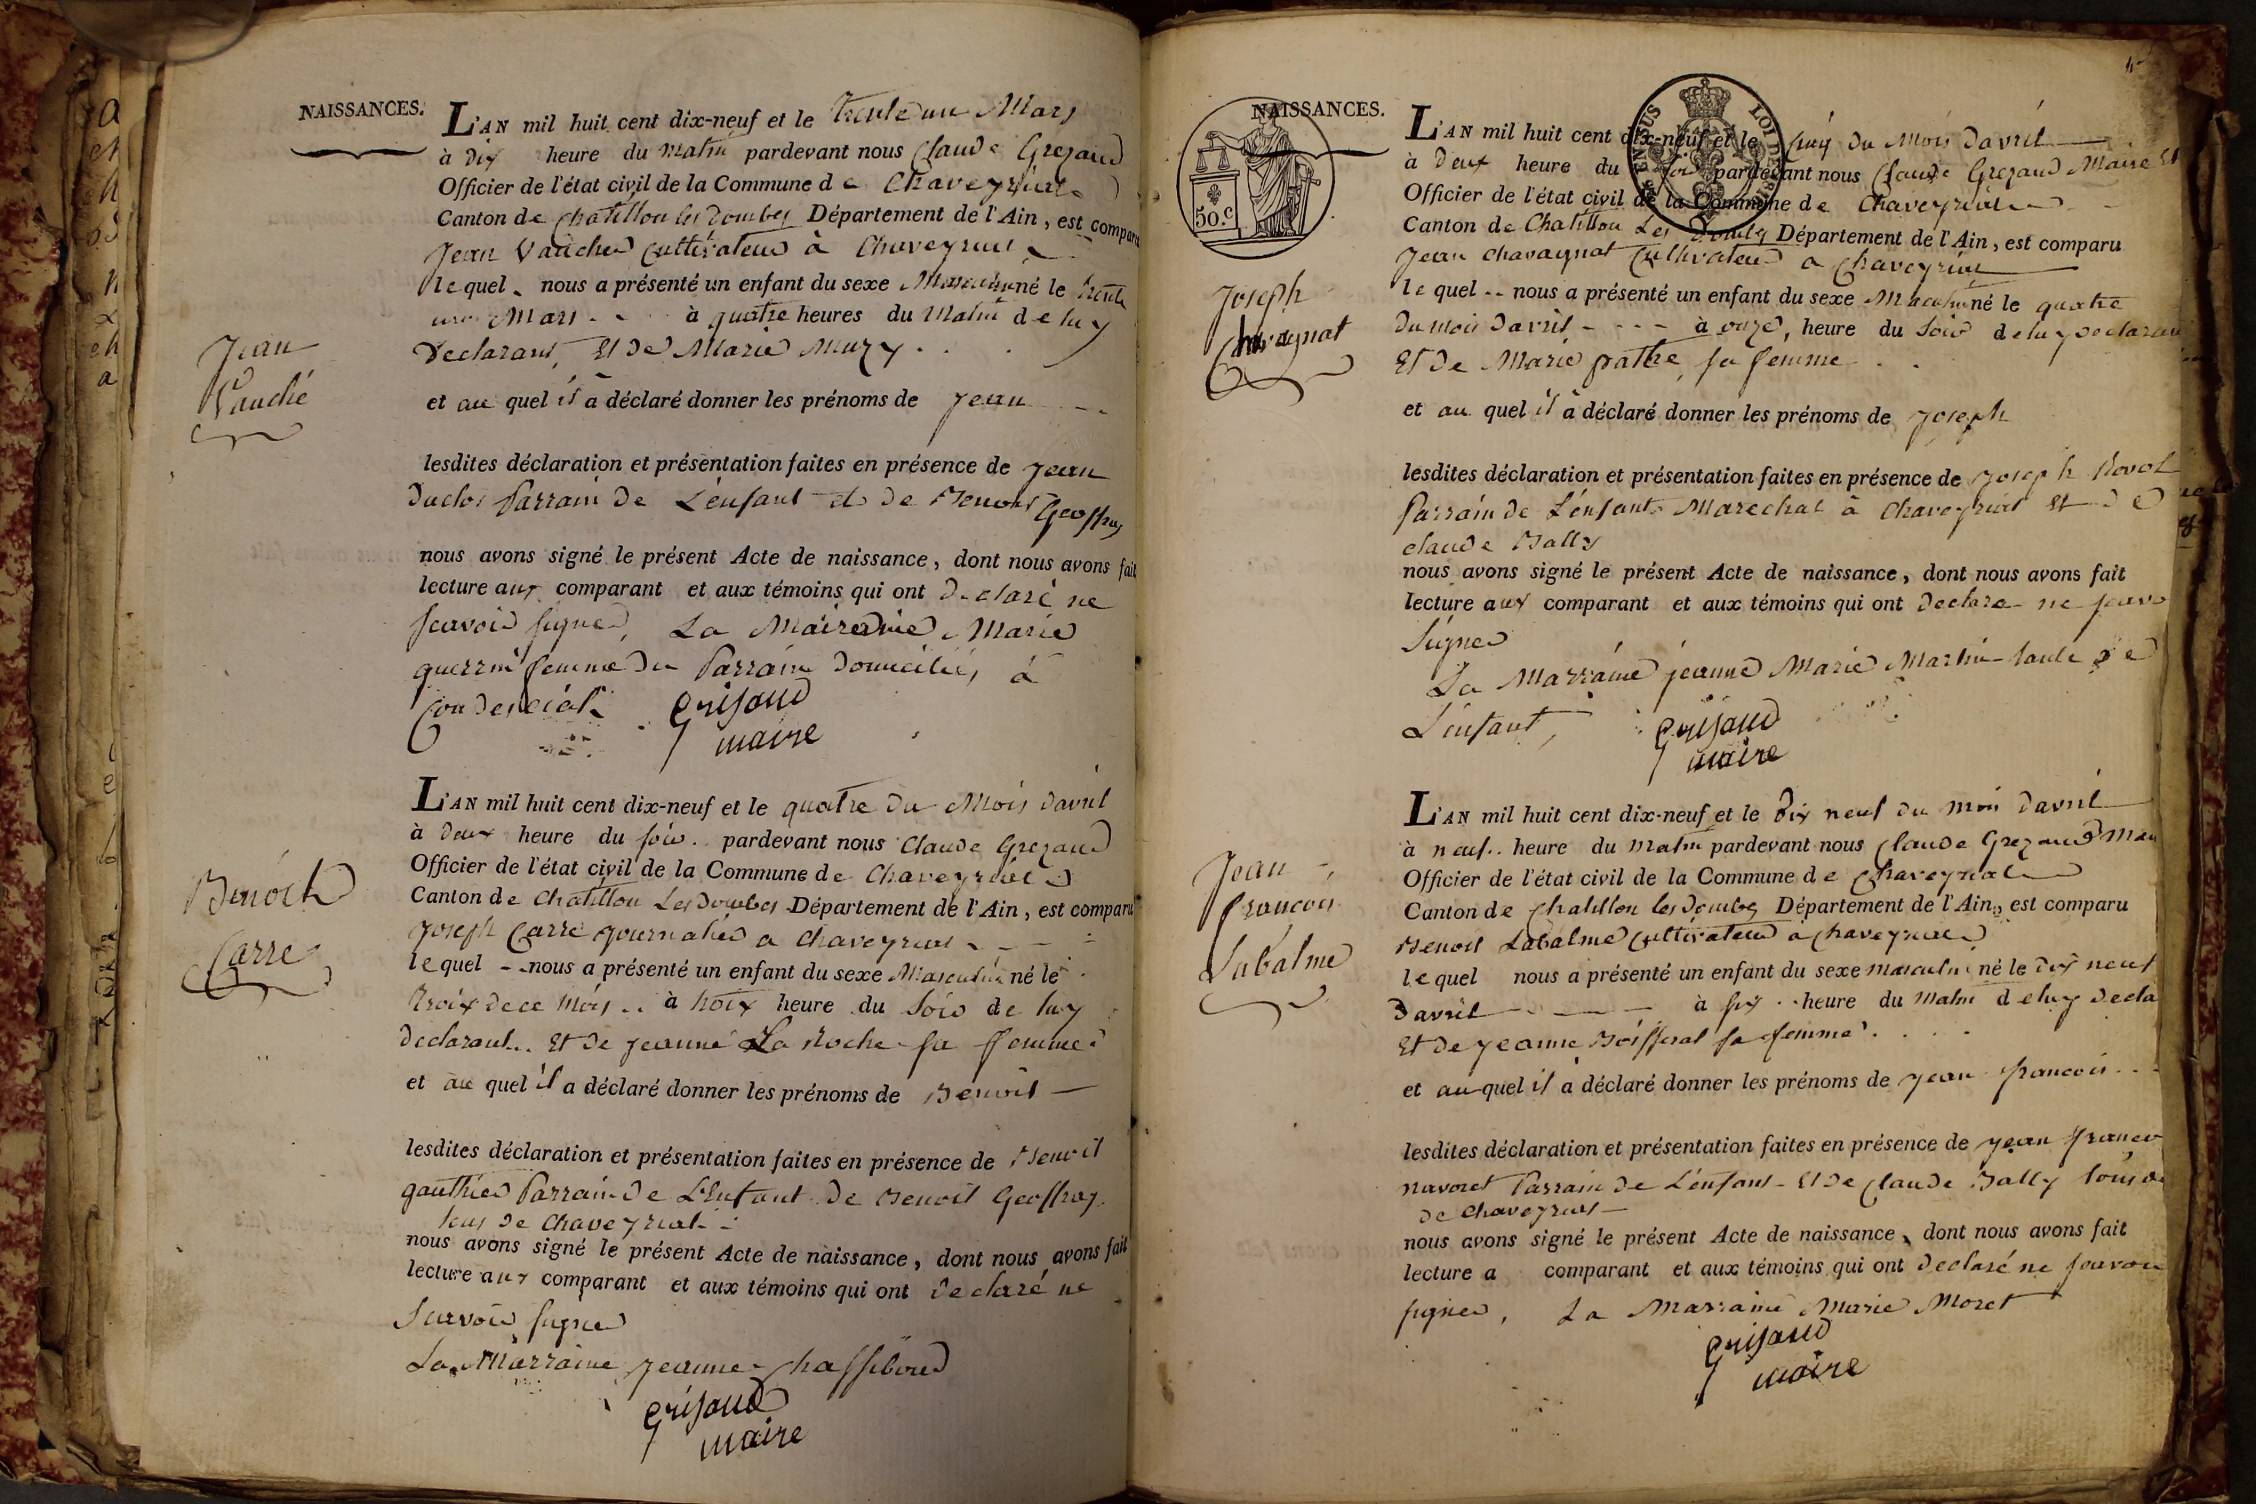 NAISSANCES.
L'AN mil huit cent dix-neuf et le trente un Mars
à dix heure du matin pardevant nous Claude Grezaud
Officier de l'état civil de la Commune de Chaveyriat
Canton de Chatillon les Dombes Département de l'Ain, est comparu
Jean Vauché Cultivateur à Chaveyriat
lequel nous a présenté un enfant du sexe Masculin né le trente
un Mars à quatre heures du Matin de luy
Declarant, Et de Marie Muzy
Jean
Vauché
et au quel il a déclaré donner les prénoms de Jean
lesdites déclaration et présentation faites en présence de Jean
Duclos Parrain de L'enfant et de Benoit Geoffray
nous avons signé le présent Acte de naissance, dont nous avons fait
lecture aux comparant et aux témoins qui ont declaré ne
scavoir signer, La Maireine Marie
guerrin femme du Parrain domiciliés à
Condesciat Grisaud
maire
L'AN mil huit cent dix-neuf et le quatre du Mois davril
à deux heure du soir pardevant nous Claude Grezaud
Officier de l'état civil de la Commune de Chaveyriat
Benoit
Carre
Canton de Chatillon Les Dombes Département de l'Ain, est comparu
Joseph Carre journalier a Chaveyriat
lequel nous a présenté un enfant du sexe Masculin né le
troix de ce Mois à troix heure du Soir de luy
declarant Et de jeanne La Roche sa femme
et au quel il a déclaré donner les prénoms de Benoit
lesdites déclaration et présentation faites en présence de Benoit
gauthier Parrain de L'Enfant de Benoit Geoffray
tous de Chaveyriat
nous avons signé le présent Acte de naissance, dont nous avons fait
lecture aux comparant et aux témoins qui ont Declaré ne
Scavoir signer
La Marraine jeanne Chassiboud
Grisaud
maire
NAISSANCES.
50.c
L'AN mil huit cent dix-neuf et le Cinq du Mois davril
à deux heure du soir pardevant nous Claude Grezaud Maire Et
Officier de l'état civil de la Commune de Chaveyriat
Canton de Chatillon Les Dombes Département de l'Ain, est comparu
Jean Chavagnat Cultivateur a Chaveyriat
lequel nous a présenté un enfant du sexe Maculin né le quatre
du mois davril à onze heure du Soir de luy declarant
Et de Marie pathe sa femme
Joseph
Chavagnat
et au quel il a déclaré donner les prénoms de Joseph
lesdites déclaration et présentation faites en présence de Joseph Rovot
Parrain de L'enfant Marechal à Chaveyriat Et de
claude Bally
nous avons signé le présent Acte de naissance, dont nous avons fait
lecture aux comparant et aux témoins qui ont declare ne scavo
signer
La Marraine jeanne Marie Martin tante de
L'enfant, Grisaud
maire
L'AN mil huit cent dix-neuf et le Dix neuf du moi davril
à neuf heure du matin pardevant nous Claude Grezaud Mair
Officier de l'état civil de la Commune de Chaveyriat
Jean
francois
Labalme
Canton de Chatillon les Dombes Département de l'Ain, est comparu
Benoit Labalme Cultivateur a Chaveyriat
lequel nous a présenté un enfant du sexe masculin né le dix neuf
Davril à six heure du Matin de luy decla
Et de jeanne Boifferal sa femme
et au quel il a déclaré donner les prénoms de Jean francois
lesdites déclaration et présentation faites en présence de jean franco
navoret Parrain de L'enfant Et de Claude Bally tous
de Chaveyriat
nous avons signé le présent Acte de naissance, dont nous avons fait
lecture a comparant et aux témoins qui ont declaré ne scavoir
signer, La Marraine Marie Moret
Grisaud
maire